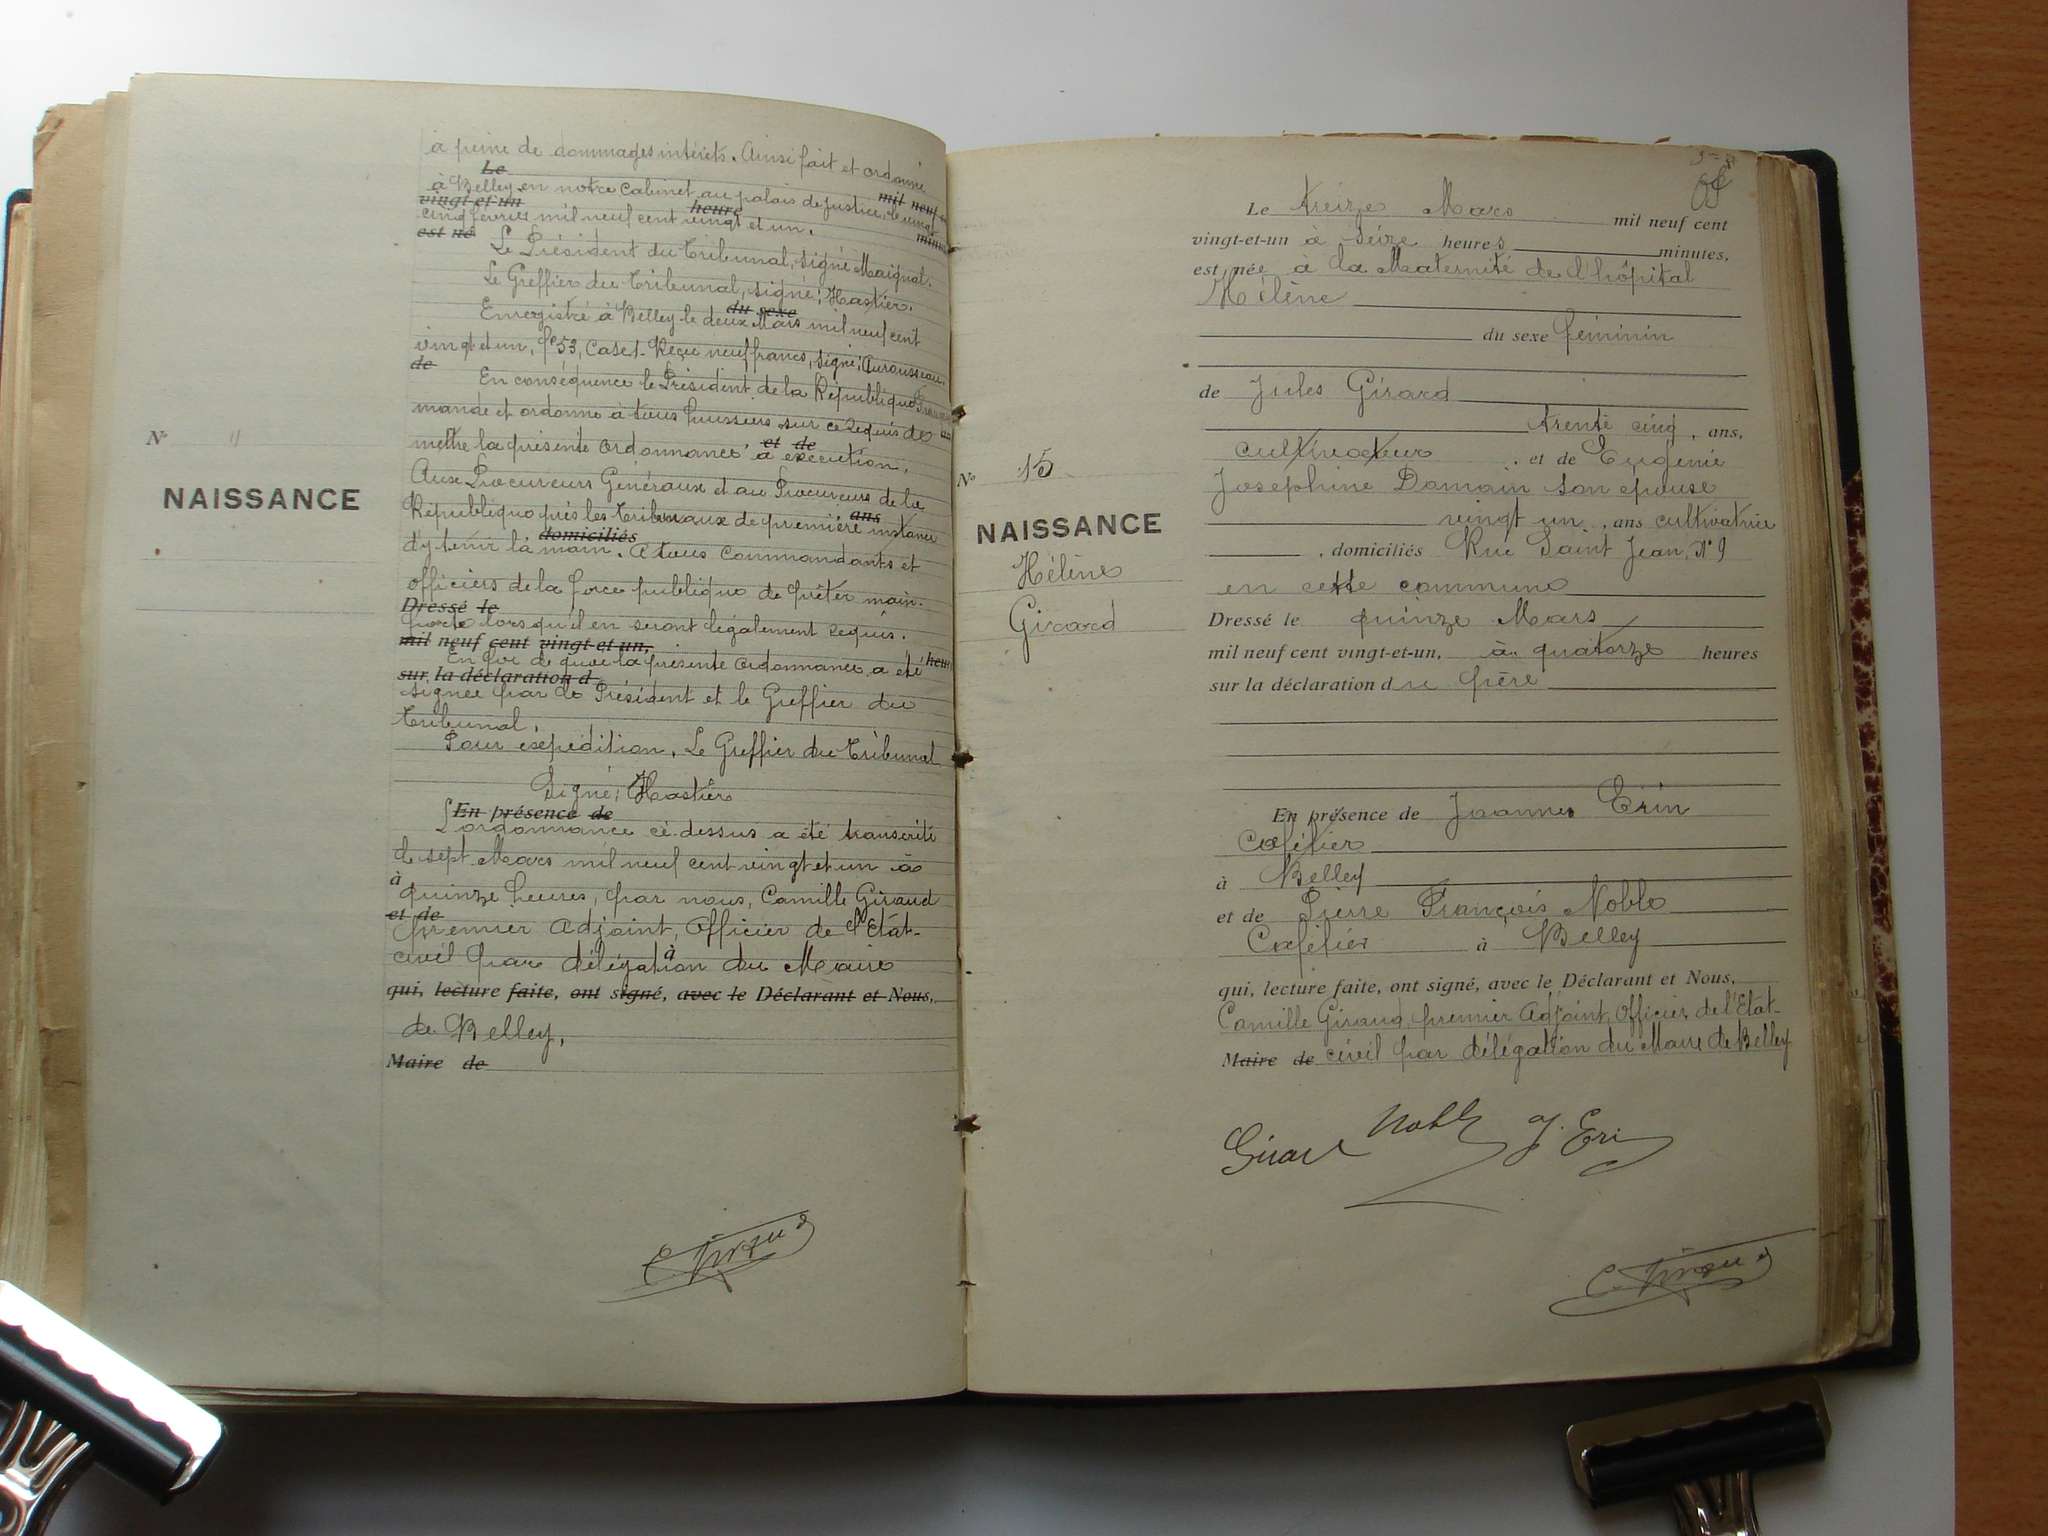 à peine de dommages intérêts. Ainsi fait et ordonné
Le
à Belley en notre Cabinet au palais de justice, le vingt
mil neuf
vingt et un heure
cinq février mil neuf cent vingt et un.
est né
Le Président du Tribunal, signé Maignal.
Le Greffier du Tribunal, signé; Hastier.
du sexe
Enregistré à Belley le deux Mars mil neuf cent
vingt et un, f° 53, Case 1. Reçu neuf francs, signé; Aurousseau.
de
En conséquence le Président de la République
mande et ordonne à tous huissiers sur ce requis de
et de
mettre la présente Ordonnance à exécution.
Aux Procureurs Généraux et au Procureurs de la
ans
République près les Tribunaux de première instance
domiciliés
d'y tenir la main. A tous Commandants et
officiers de la force publique de prêter main-
Dressé le
forte lorsqu'il en seront légalement requis.
mil neuf cent vingt-et-un,
En foi de quoi la présente Ordonnance a été
heu
sur la déclaration d
signée par le Président et le Greffier du
Tribunal.
Pour expédition. Le Greffier du Tribunal
Signé; Hastier
En présence de
L'ordonnance ci-dessus a été transcrite
le sept Mars mil neuf cent vingt et un à
à
quinze heures, par nous, Camille Giraud
et de
premier Adjoint, Officier de l'Etat-
à
civil par délégation du Maire
qui, lecture faite, ont signé, avec le Déclarant et Nous,
de Belley.
Maire de
C. Giraud
N°
NAISSANCE
N° 15
NAISSANCE
Hélène
Girard
Le treize Mars mil neuf cent
vingt-et-un à seize heures minutes,
est née à la Maternité de l'hôpital
Hélène
du sexe féminin
de Jules Girard
trente cinq, ans,
cultivateur, et de Eugénie
Josephine Domain son epouse
vingt un, ans cultivatrice
, domiciliés Rue Saint Jean, N° 9
en cette commune
Dressé le quinze Mars
mil neuf cent vingt-et-un, à quatorze heures
sur la déclaration du père
En présence de Joannes Erin
Cafetier
à Belley
et de Pierre François Noble
Cafetier à Belley
qui, lecture faite, ont signé, avec le Déclarant et Nous,
Camille Giraud, premier Adjoint, Officier de l'Etat-
Maire de civil par délégation du Maire de Belley
Girard Noble J. Eri
C. Giraud